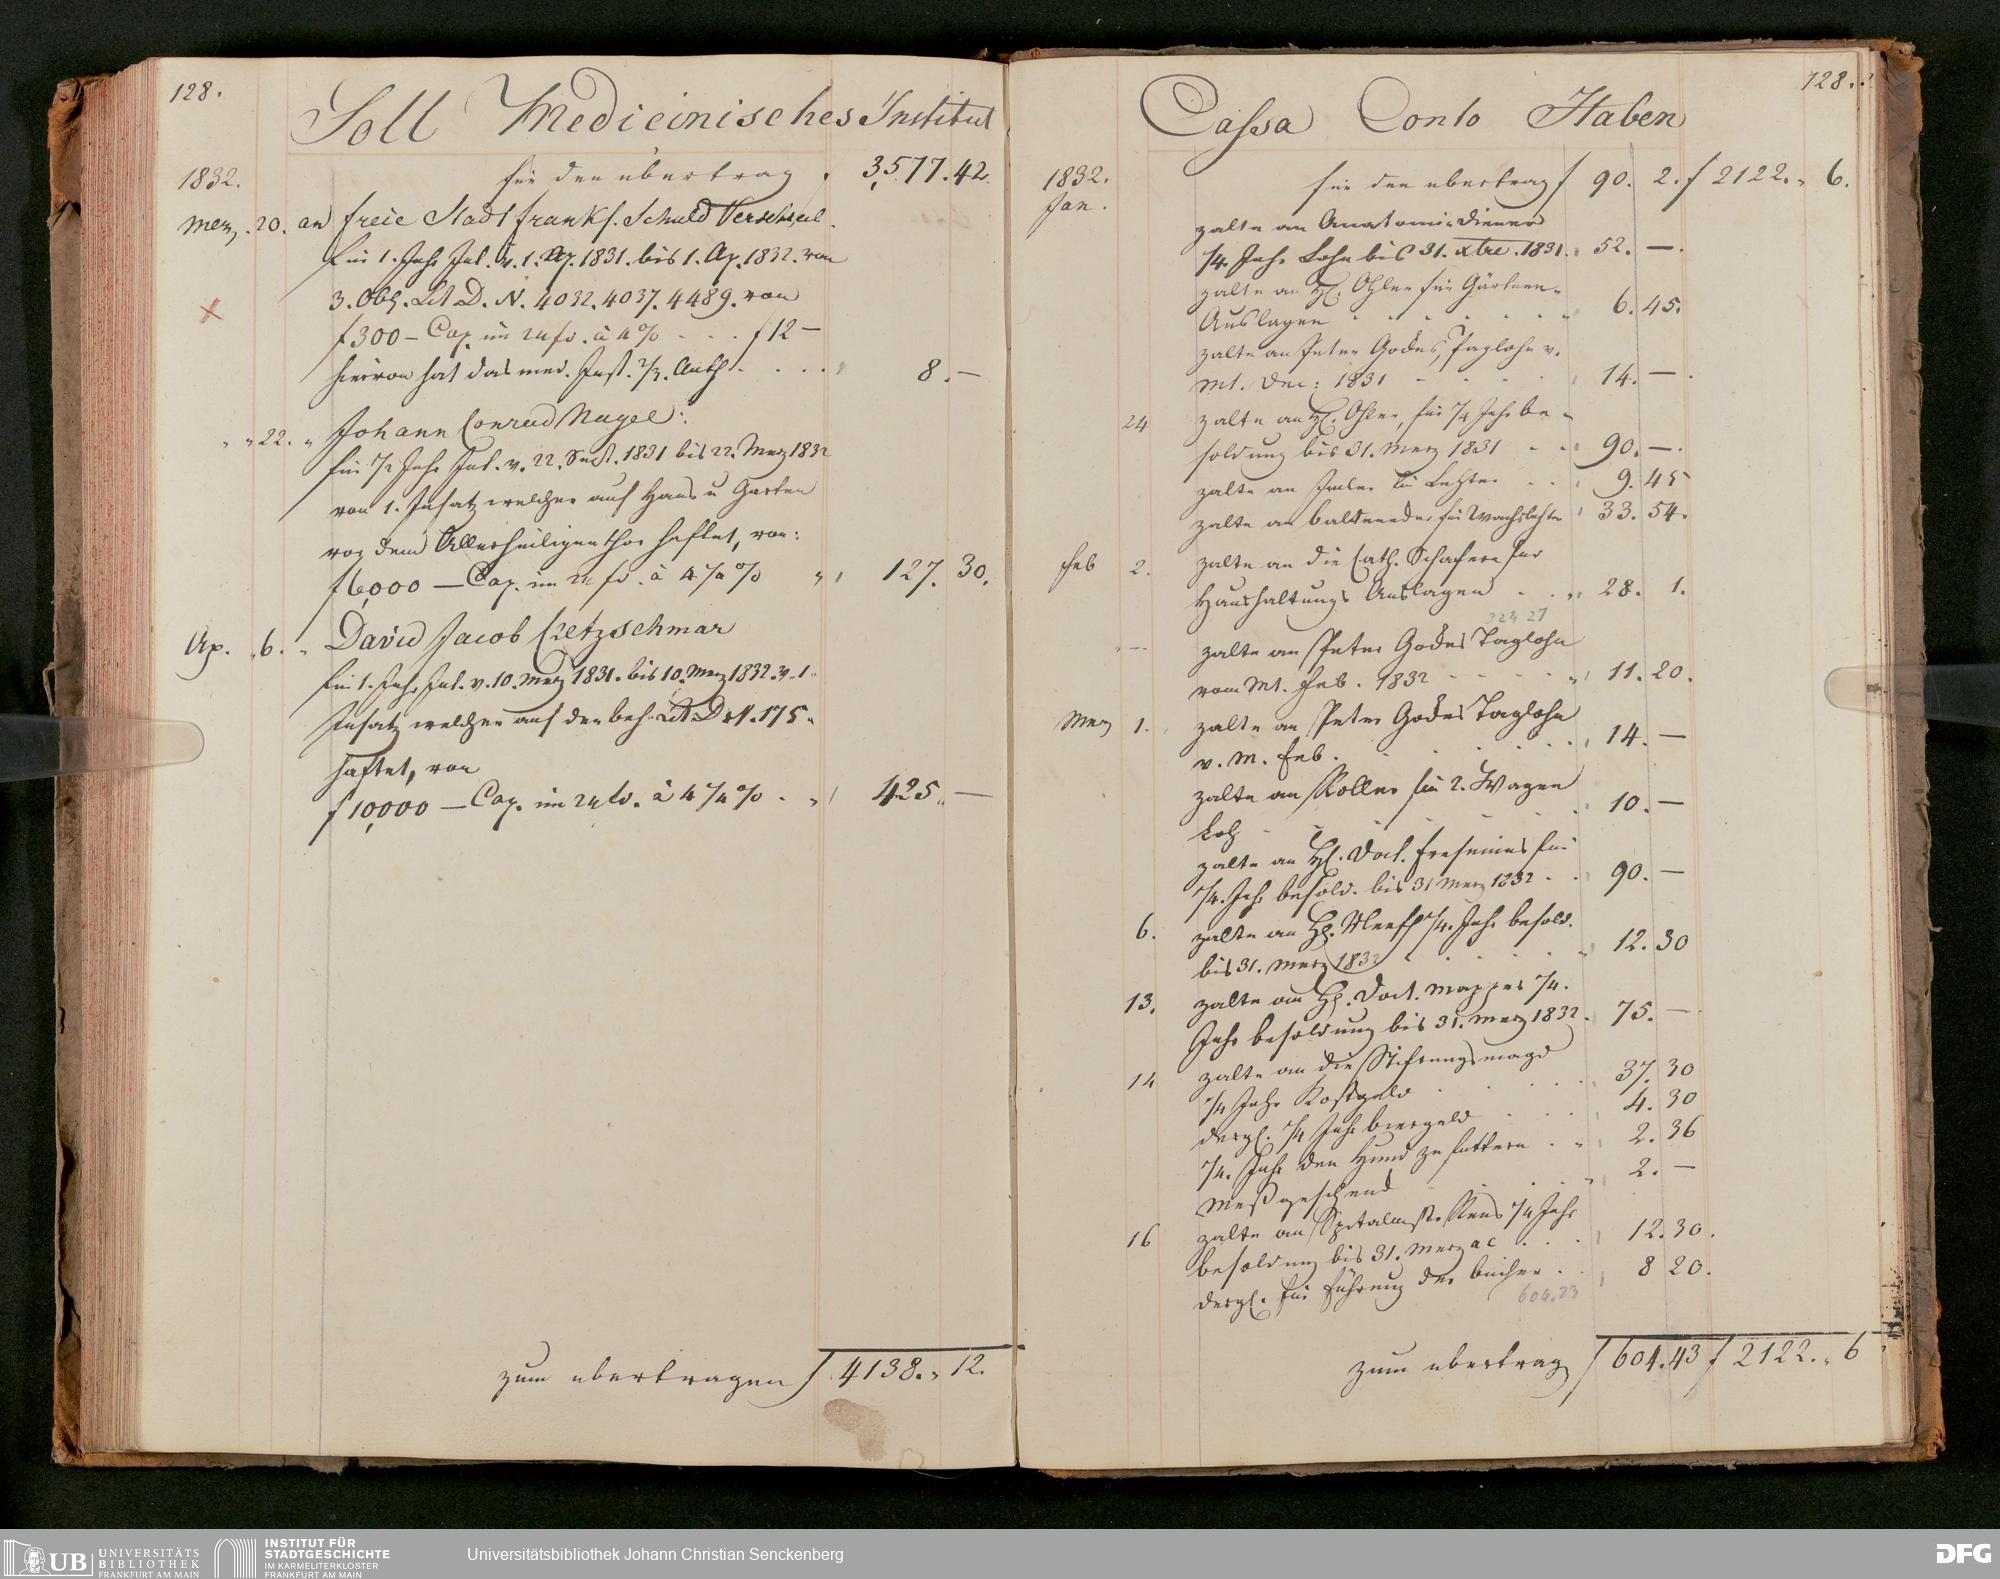 128.
Soll Medicinisches Institut
1832.
für den übertrag . 3,577.42.
Merz .20. an freie Stadt Frankf. Schuld Verschreib.
für 1. Jahr Int. v. 1. Ap. 1831. bis 1. Ap. 1832. von
3. Obg. Lit D. N. 4032. 4037. 4489. von
f 300 – Cap. im 24 fs. à 4 % . . . f 12 –
hiervon hat das med. Inst. 2/3. Anth . . . . 8. —
" " 22. " Johann Conrad Nagel:
für 1/2 Jahr Int. v. 22. Sept. 1831 bis 22. Merz 1832
von 1. Insatz welcher auf Haus u Garten
vor dem Allerheiligenthor haftet, von:
f 6,000 — Cap. im 24 fs. à 4 1/4 % " 127. 30.
Ap. " 6. " David Jacob Kretzschmar
für 1. Jahr Int. v. 10. Merz 1831. bis 10. Merz 1832. v. 1
Insatz welcher auf der beh. Lit D N. 175
haftet, von
f 10,000 — Cap. im 24 fs. à 4 1/4 % . " 425. —
zum übertragen f 4138. " 12.
128.
Cassa Conto Haben
1832.
Jan.
für den übertrag f 90. 2. f 2122. " 6.
zalte an Anatomie diener
1/4. Jahr Lohn bis 31. xbre. 1831. 52. —.
zalte an H. Ohler für Gärtner-
Auslagen . . . . . . 6. 45.
zalte an Peter Godes, Taglohn v.
Mt. Dec: 1831 . . . 14. —.
24 zalte an H. Ohler, für 1/4 Jahr be-
soldung bis 31. Merz 1831 . . 90. —.
zalte an für Lichter . . 9. 45
zalte an für Wachslichte 33. 54.
Feb 2. zalte an die Cath. Schafern für
Haushaltungs Auslagen . . 28. 1.
324 27
" — zalte an Peter Godes Taglohn
vom Mt. Feb. 1832 . . . . 11. 20.
Merz 1. zalte an Peter Godes Taglohn
v. M. Feb. . . . . . . 14. —
zalte an Koller für 2. Wagen
. . . . . 10. —
zalte an H. Doct. Fresenius für
1/4. Jahr besold. bis 31 Merz 1832 . . 90. —
6. zalte an H. 1/4. Jahr besold.
bis 31. Merz 1832 . . . . . 12. 30
13. zalte an H. Doct. Mappes 1/4.
Jahr besoldung bis 31. Merz 1832 . 75. —
14 zalte an die Stiftungsmagd
1/4 Jahr Kostgeld . . . . 37. 30
desgl. 1/4 Jahr biergeld . . . 4. 30
1/4. Jahr den Hund zu futtern . . 2. 36
Meßgeschenk . . . 2. —
16 zalte an Spitalmstr Reus 1/4 Jahr
besoldung bis 31. Merz ac . . . 12. 30.
desgl. für Führung der bücher . . 8 20.
604.23
zum übertrag f 604.43 f 2122. " 6
UB UNIVERSITÄTS
BIBLIOTHEK
FRANKFURT AM MAIN
INSTITUT FÜR
STADTGESCHICHTE
IM KARMELITERKLOSTER
FRANKFURT AM MAIN
Universitätsbibliothek Johann Christian Senckenberg
DFG